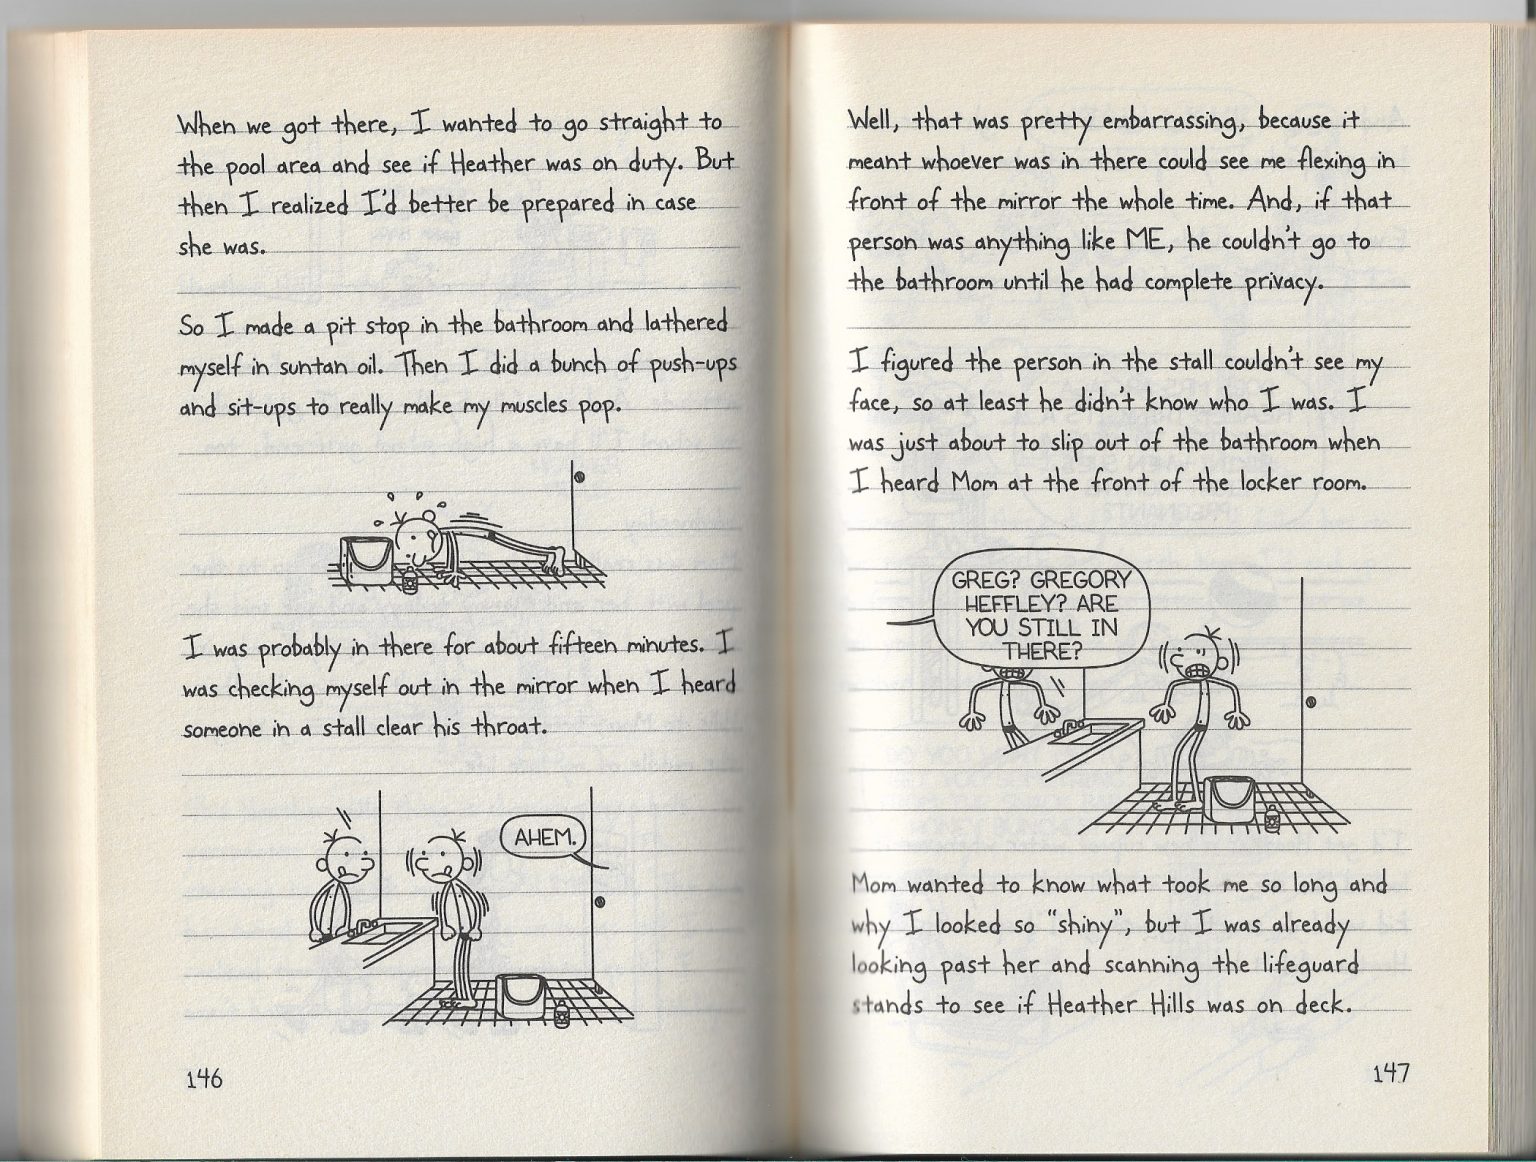 When we got there, I wanted to go straight to
the pool area and see if Heather was on duty. But
then I realized I'd better be prepared in case
she was.
So I made a pit stop in the bathroom and lathered
myself in suntan oil. Then I did a bunch of push-ups
and sit-ups to really make my muscles pop.
I was probably in there for about fifteen minutes. I
was checking myself out in the mirror when I heard
someone in a stall clear his throat.
AHEM.
146
Well, that was pretty embarrassing, because it
meant whoever was in there could see me flexing in
front of the mirror the whole time. And, if that
person was anything like ME, he couldn't go to
the bathroom until he had complete privacy.
I figured the person in the stall couldn't see my
face, so at least he didn't know who I was. I
was just about to slip out of the bathroom when
I heard Mom at the front of the locker room.
GREG? GREGORY
HEFFLEY? ARE
YOU STILL IN
THERE?
Mom wanted to know what took me so long and
why I looked so "shiny", but I was already
looking past her and scanning the lifeguard
stands to see if Heather Hills was on deck.
147